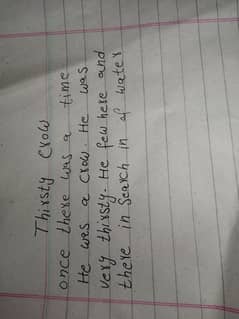 Thirsty Crow
once there was a time
He wes a crow. He was
very thirsty. He few here and
there in Search in of water